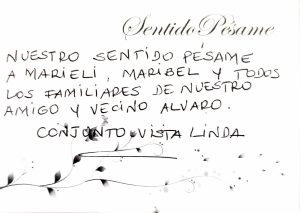 Sentido Pésame
NUESTRO SENTIDO PÉSAME
A MARIELI, MARIBEL Y TODOS
LOS FAMILIARES DE NUESTRO
AMIGO Y VECINO ALVARO.
CONJUNTO VISTA LINDA